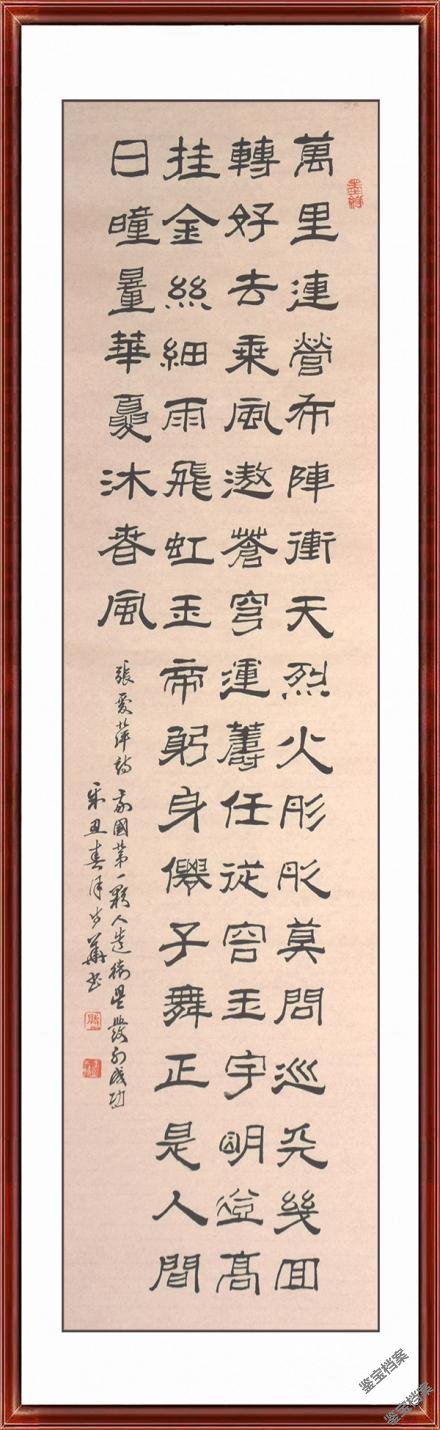 萬里連營布陣衝天烈火彤彤莫問巡天幾回
轉好去乘風遨蒼穹運籌任從容玉宇明登高
挂金絲細雨飛虹玉帝躬身僊子舞正是人間
日曈華夏沐春風
張愛萍詩 我國第一顆人造衛星發射成功
辛丑春書
鉴宝档案
鉴宝档案